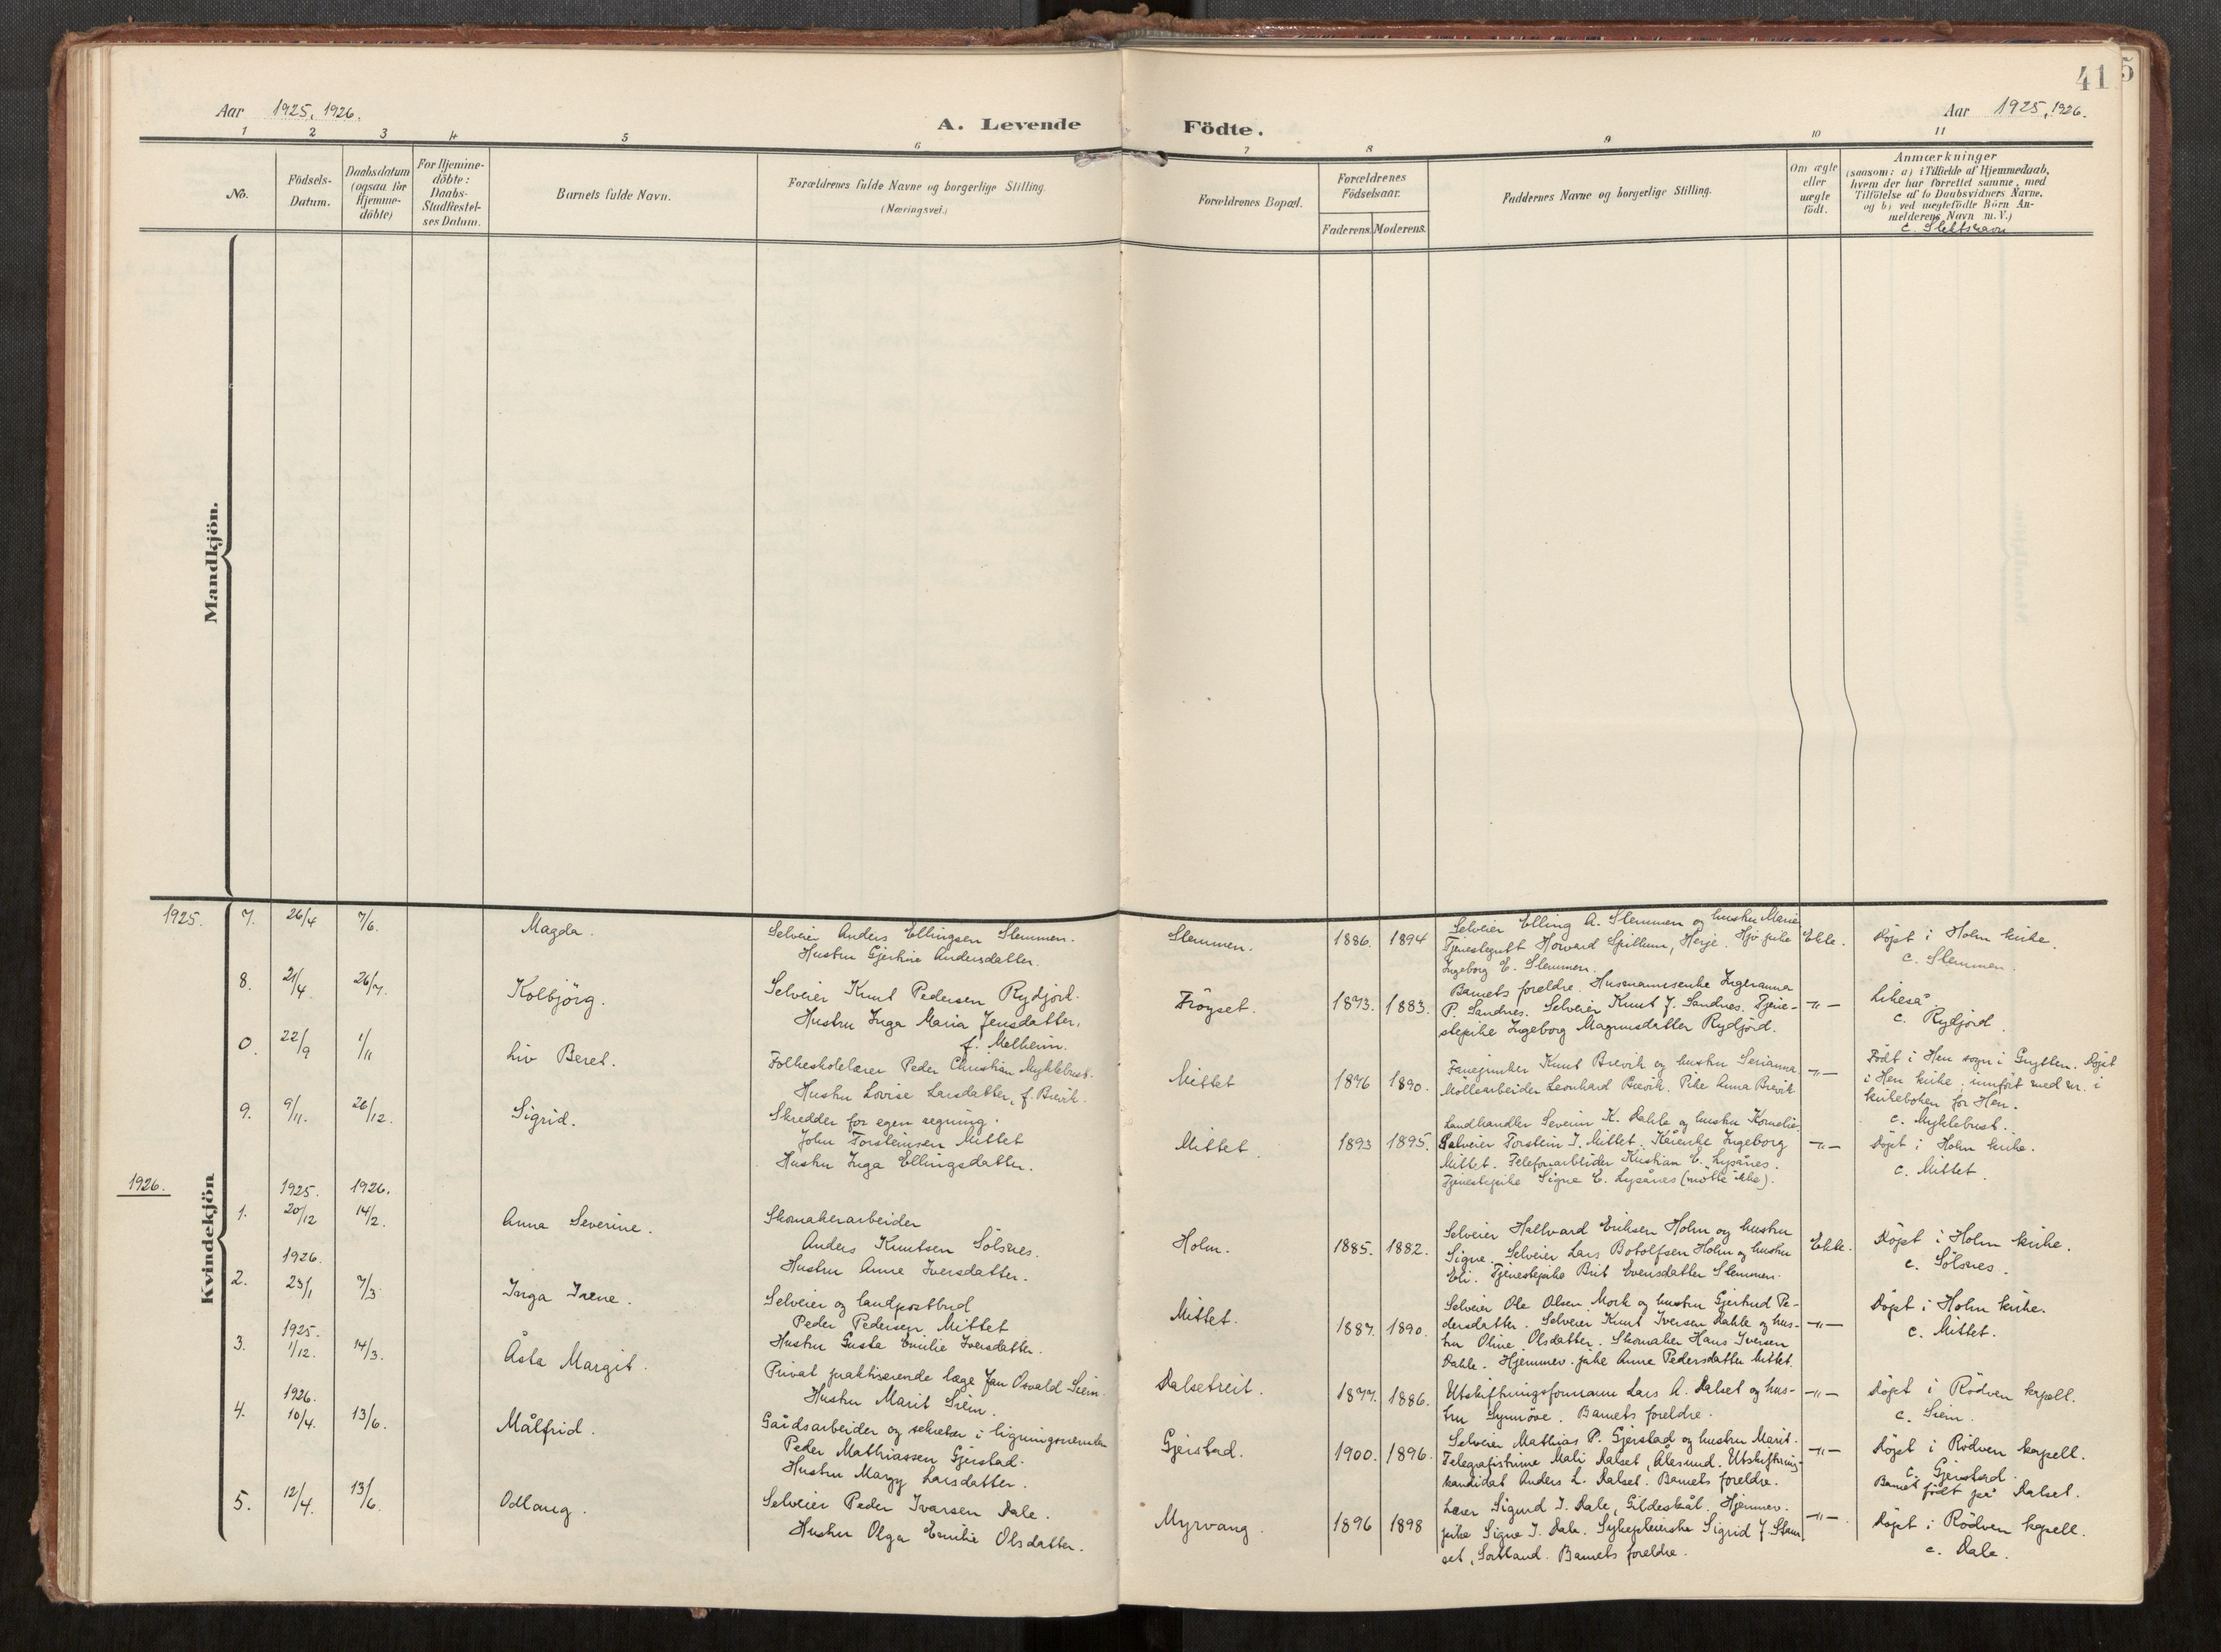 41
5
Aar 1925, 1926.
A. Levende Födte.
Aar 1925, 1926.
1 2 3 4 5 6 7 8 9 10 11
No.
Födsels-
Datum.
Daabsdatum
(ogsaa for
Hjemme-
döbte)
For Hjemme-
döbte:
Daabs-
Stadfæstel-
ses Datum.
Barnets fulde Navn.
Forældrenes fulde Navne og borgerlige Stilling.
(Næringsvei.)
Forældrenes Bopæl.
Forældrenes
Födselsaar.
Faderens. Moderens.
Faddernes Navne og borgerlige Stilling.
Om ægte
eller
uægte
födt.
Anmærkninger
(saasom: a) i Tilfælde af Hjemmedaab,
hvem der har forrettet samme, med
Tilföielse af to Daabsvidners Navne,
og b) ved uægtefödte Börn An-
melderens Navn m.V.)
c. Slektsnavn
Mandkjön.
Kvindekjön
1925.
7. 26/4 7/6. Magda.
Selveier Anders Ellingsen Slemmen.
Hustru Gjertine Andersdatter.
Slemmen. 1886. 1894
Selveier Elling A. Slemmen og hustru Marie
Tjenestegutt Howard Spillum, Herje. Hjv pike
Ingeborg E. Slemmen.
Ekte.
Döpt i Holm kirke.
c. Slemmen.
8. 21/4 26/7. Kolbjörg.
Selveier Knut Pedersen Rydjord.
Hustru Inga Maria Jensdatter,
f. Melheim.
Fröyset. 1873. 1883.
Barnets foreldre. Husmannsenke Ingeranna
P. Sandnes. Selveier Knut J. Sandnes. Tjene-
stepike Ingeborg Magnusdatter Rydjord.
-"-
Likeså.
c. Rydjord.
0. 22/9 1/11 Liv Beret.
Folkeskolelærer Peder Christian Myklebust.
Hustru Lovise Larsdatter, f. Brevik.
Mittet 1876 1890.
Fanejunker Knut Brevik og hustru Serianna
Möllearbeider Leonhard Brevik. Pike Anna Brevik
-"-
Födt i Hen sogn i Grytten. Döpt
i Hen kirke, innfört med nr. i
kirkeboken for Hen.
c. Myklebust.
9. 9/11. 26/12. Sigrid.
Skredder for egen regning.
John Torsteinsen Mittet
Hustru Inga Ellingsdatter.
Mittet. 1893 1895.
Landhandler Severin K. Dahle og hustru Kornelie.
Selveier Torstein J. Mittet. Kårenke Ingeborg
Mittet. Telefonarbeider Kristian E. Lysånes.
Tjenestepike Signe E. Lysånes (mötte ikke).
-"-
Döpt i Holm kirke.
c. Mittet.
1926.
1925. 1926.
1. 20/12 14/2. Anna Severine.
Skomakerarbeider
Anders Knutsen Sölsnes.
Hustru Anne Iversdatter.
Holm. 1885. 1882.
Selveier Hallvard Eriksen Holm og hustru
Signe. Selveier Lars Botolfsen Holm og hustru
Eli. Tjenestepike Brit Evensdatter Slemmen.
Ekte.
Döpt i Holm kirke.
c. Sölsnes.
1926.
2. 23/1 7/3 Inga Irene.
Selveier og landpostbud
Peder Pedersen Mittet
Hustru Gusta Emilie Iversdatter.
Mittet. 1887. 1890.
Selveier Ole Olsen Mork og hustru Gjertrud Pe-
dersdatter. Selveier Knut Iversen Dahle og hus-
tru Oline Olsdatter. Skomaker Hans Iversen
Dahle. Hjemmev. pike Anne Pedersdatter Mittet.
-"-
Döpt i Holm kirke.
c. Mittet.
1925.
3. 1/12. 14/3. Åsta Margit.
Privat praktiserende læge Jan Osvald Siem.
Hustru Marit Siem.
Dalsetreit. 1877. 1886.
Utskiftningsformann Lars A. Dalset og hus-
tru Synnöve. Barnets foreldre.
-"-
Döpt i Rödven kapell.
c. Siem.
1926.
4. 10/4. 13/6. Målfrid.
Gårdsarbeider og sekretær i ligningsnemnden
Peder Mathiassen Gjerstad.
Hustru Margy Larsdatter.
Gjerstad. 1900. 1896.
Selveier Mathias P. Gjerstad og hustru Marit.
Telegrafistinne Mali Dalset, Ålesund. Utskiftnings-
kandidat Anders L. Dalset. Barnets foreldre.
-"-
Döpt i Rödven kapell.
c. Gjerstad.
Barnet födt på Dalset.
5. 12/4. 13/6. Odlaug.
Selveier Peder Ivarsen Dale.
Hustru Olga Emilie Olsdatter.
Myrvang. 1896 1898
Lærer Sigurd I. Dale, Gildeskål. Hjemmev.
pike Signe I. Dale. Sykepleierske Sigrid J.
set, Sortland. Barnets foreldre.
-"-
Döpt i Rödven kapell.
c. Dale.